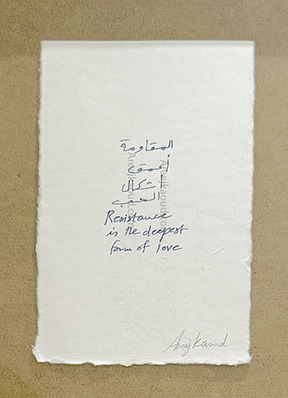 المقاومة
أعمق
أشكال
الحب
Resistance
is the deepest
form of love